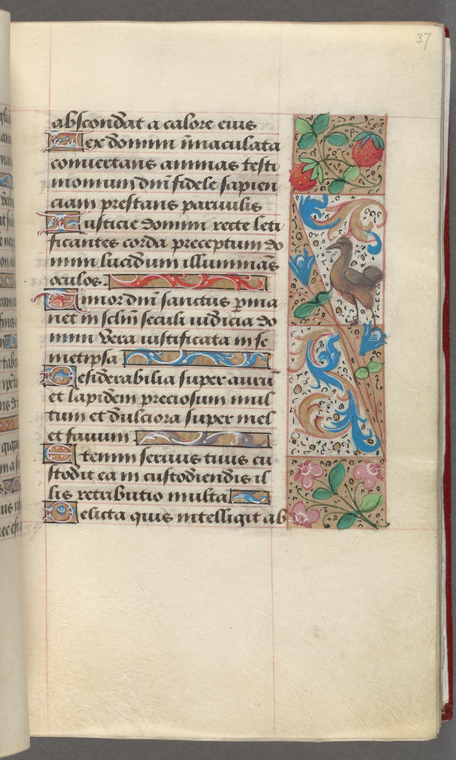 37
abscondat a calore eius
Lex domini īmaculata
conuertans animas testi
monium dn̄i fidele sapien
ciam prestans paruulis
Iusticie domini recte leti
ficantes corda preceptum do
mini lucidum illuminās
oculos.
Timor dn̄i sanctus ꝑma
net in sclm̄ seculi iudicia do
mini vera iustificata in se
metipsa
Desiderabilia super aurū
et lapidem preciosum mul
tum et dulciora super mel
et fauum
Etenim seruus tuus cu
stodit ea in custodiendis il
lis retributio multa
Delicta quis intelligit ab